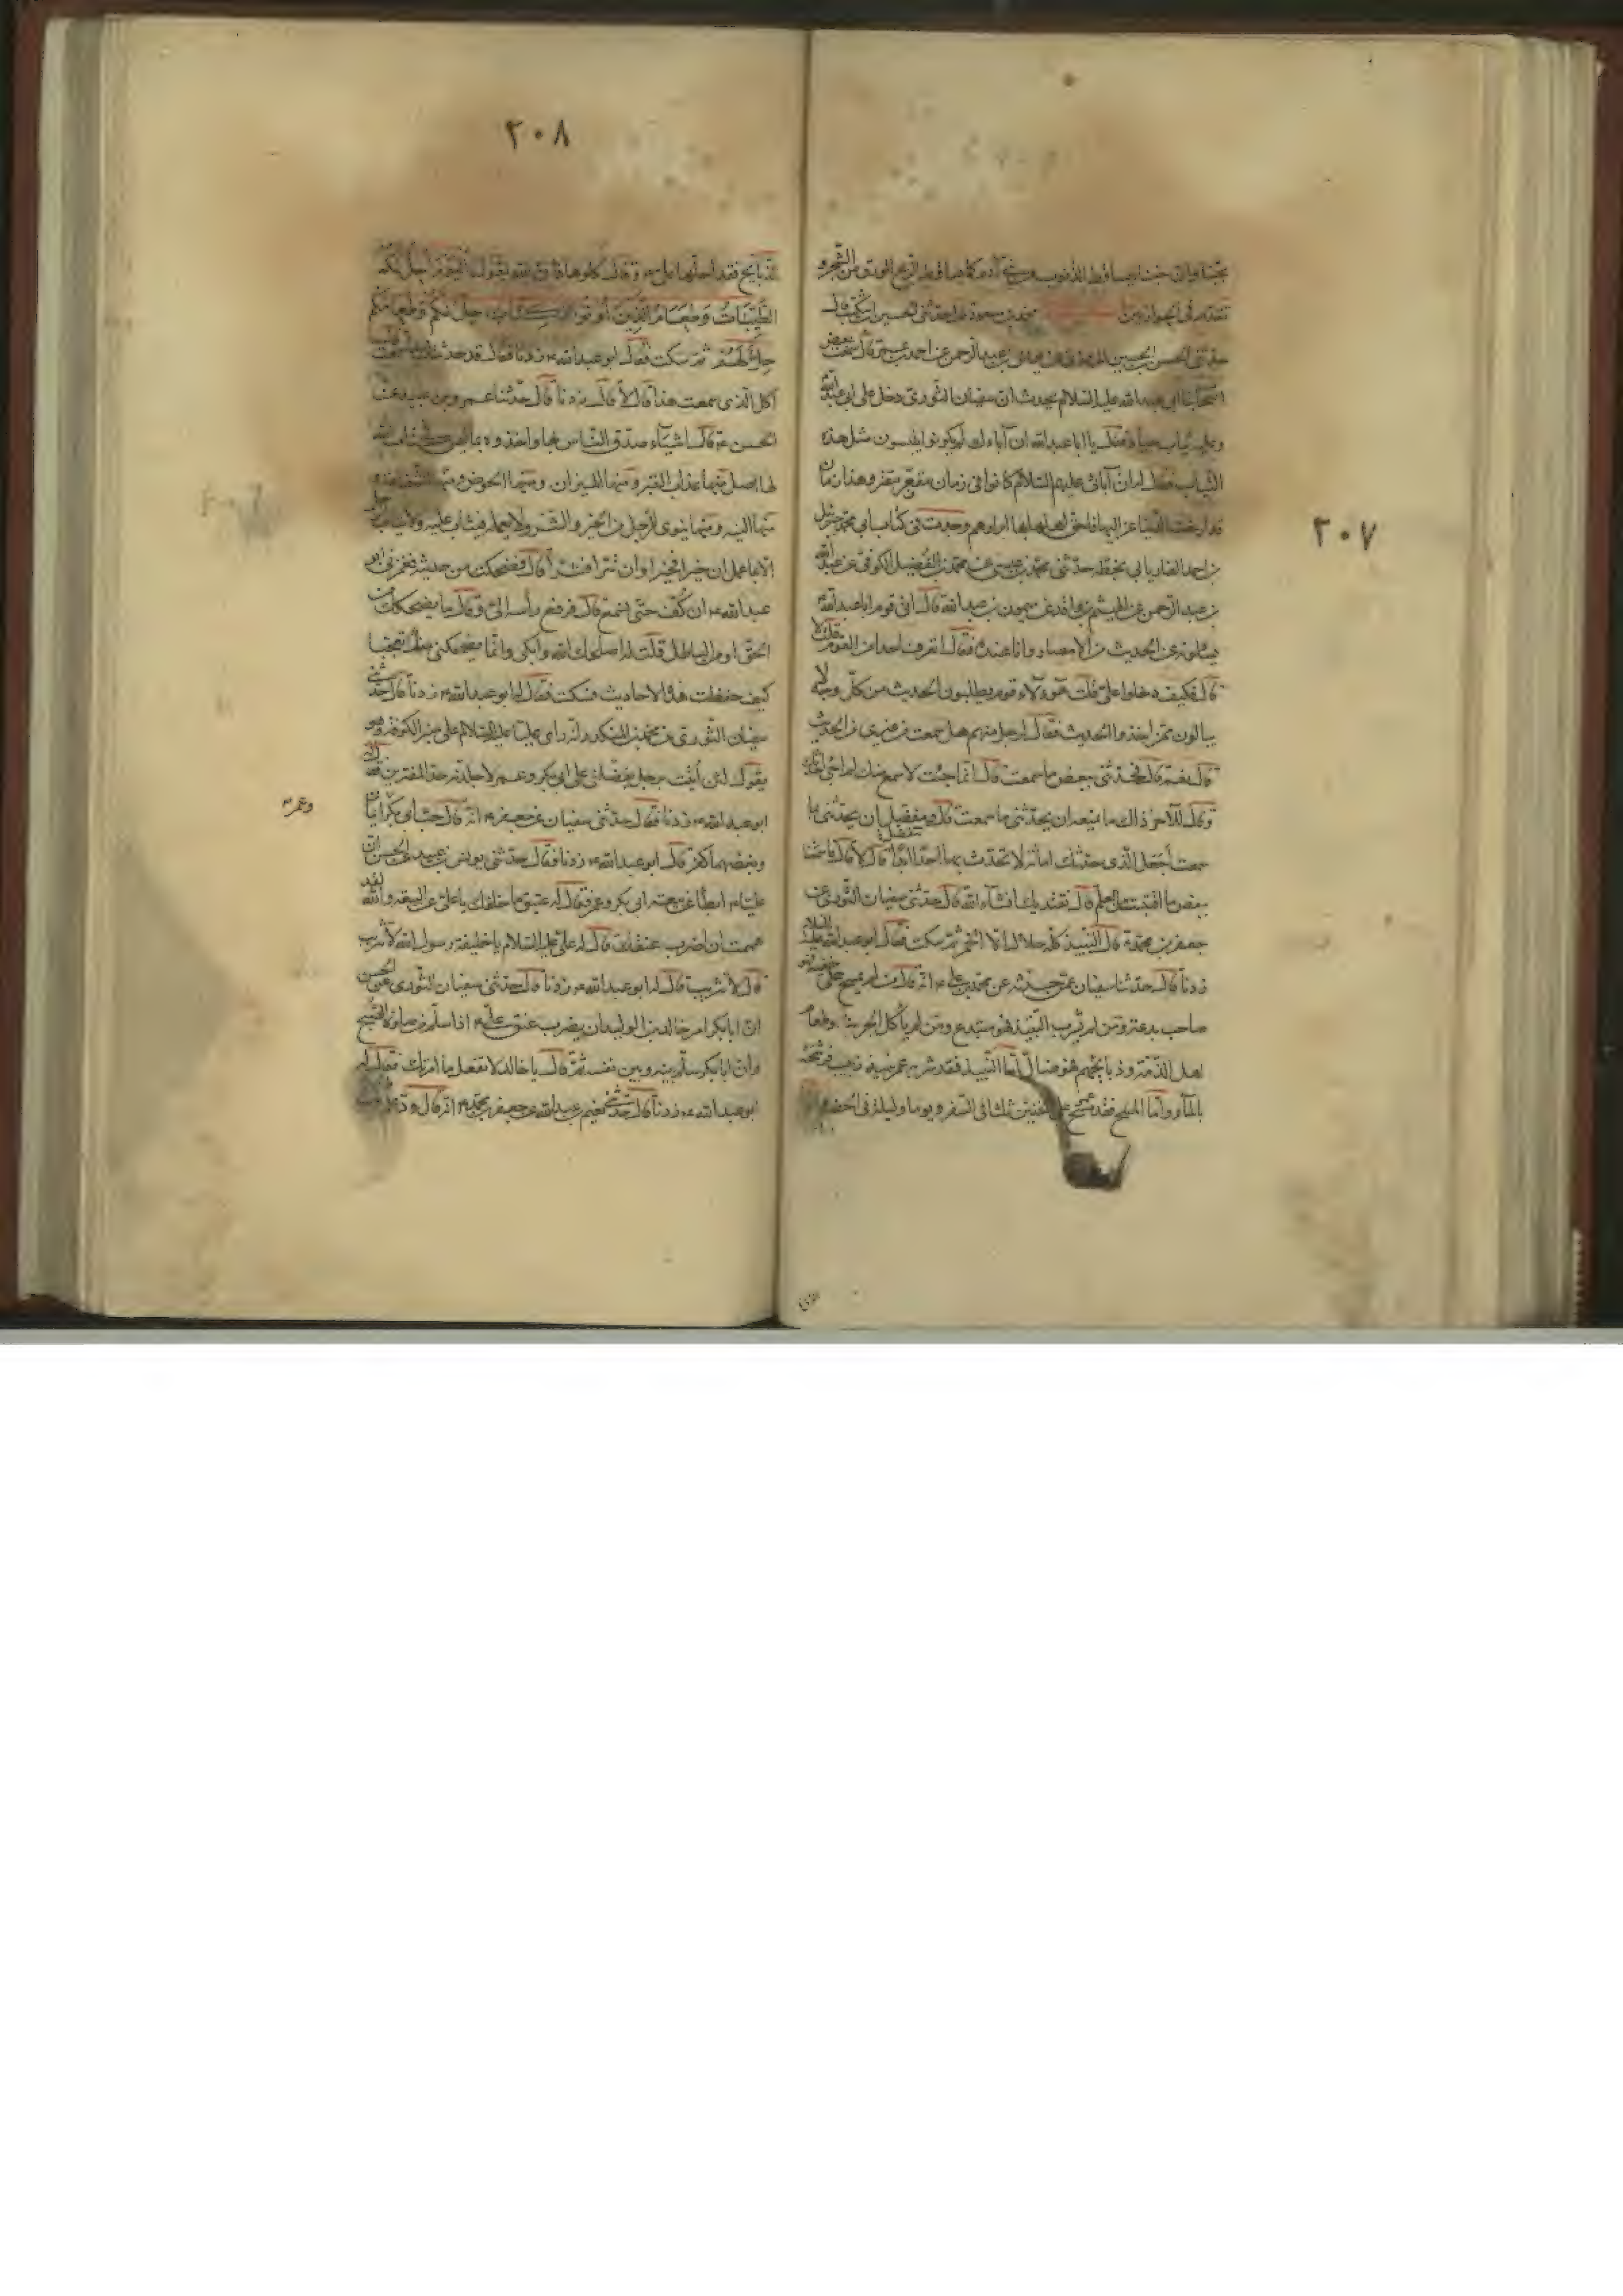 ٣٠٧
تقدم في الحواريين محمد بن مسعود قال حدثني الحسين بن اشكيب قال
حدثني الحسن بن الحسين عن يونس بن عبد الرحمن عن احمد بن عمر قال سمعت بعض
اصحاب ابي عبد الله عليه السلام يحدث ان سفيان الثوري دخل على ابي عبد الله
وعليه ثياب جياد فقال يا ابا عبد الله ان آباءك لم يكونوا يلبسون مثل هذه
الثياب فقال له ان آبائي عليهم السلام كانوا في زمان مقفر مقتر وهذا زمان
قد ارخت الدنيا عزاليها فاحق اهلها بها ابرارهم وجدت في كتاب ابي محمد جبرئيل
بن احمد الفاريابي بخطه حدثني محمد بن عيسى عن محمد بن الفضيل الكوفي عن عبد الله
بن عبد الرحمن عن الهيثم بن واقد عن ميمون بن عبد الله قال اتى قوم ابا عبد الله
يسئلونه الحديث من الامصار وانا عنده فقال لي اتعرف احدا من القوم فقلت لا
قال فكيف دخلوا علي قلت هؤلاء قوم يطلبون الحديث من كل وجه لا
يبالون ممن اخذوا الحديث فقال لرجل منهم هل سمعت من غيري من الحديث
قال نعم قال فحدثني ببعض ما سمعت قال انما جئت لاسمع منك لم اجئ احدثك
وقال للآخر ذاك ما يمنعه ان يحدثني ما سمعت قال وتتفضل ان تحدثني ما
سمعت أجعل الذي حدثك امانة لا تحدث بها احدا ابدا قال لا قال فاسمعنا
بعض ما اقتبست من العلم قال نعتد بك انشاء الله قال حدثني سفيان الثوري عن
جعفر بن محمد قال النبيذ كله حلال الا الخمر ثم سكت فقال ابو عبد الله عليه السلام
زدنا قال حدثنا سفيان عمن حدثه عن محمد بن علي انه قال من لم يمسح على خفيه فهو
صاحب بدعة ومن لم يشرب النبيذ فهو مبتدع ومن لم يأكل الجريث وطعام
اهل الذمة وذبايحهم فهو ضال أما النبيذ فقد شربه عمر نبيذ زبيب فرشحه
بالماء وأما المسح فقد مسح عمر على الخفين ثلثا في السفر ويوما وليلة في الحضر
٣٠٨
الذبايح فقد احلها علي وقال كلوها فان الله يقول اليوم احل لكم
الطيبات وطعام الذين أوتوا الكتاب حل لكم وطعامكم
حل لهم ثم سكت فقال ابو عبد الله زدنا فقال قد حدثتك بما سمعت
أكل الذي سمعت هذا قال لا قال زدنا قال حدثنا عمرو بن عبيد عن
الحسن قال اشياء صدق الناس بها واخذوا بما ليس في كتاب الله
لها اصل منها عذاب القبر ومنها الميزان ومنها الحوض ومنها الشفاعة و
منها النية ومنها ينوي الرجل من الخير والشر ولا يعمله فيثاب عليه ولا يثاب الرجل
الا بما عمل ان خيرا فخيرا وان شرا فشرا قال فضحكت من حديثه فغمزني ابو
عبد الله ان كف حتى نسمع قال فرفع رأسه الي وقال ما يضحكك من
الحق او من الباطل قلت له اصلحك الله وابكي وانما يضحكني منك تعجبا
كيف حفظت هذه الاحاديث فسكت فقال له ابو عبد الله زدنا قال حدثني
سفيان الثوري عن محمد بن المنكدر انه راى عليا عليه السلام على منبر الكوفة وهو
يقول لئن أتيت برجل يفضلني على ابي بكر وعمر لاجلدنه حد المفتري فقال له
ابو عبد الله زدنا فقال حدثني سفيان عن جعفر انه قال حب ابي بكر ايمان
وبغضهما كفر قال ابو عبد الله زدنا فقال حدثني يونس بن عبيد عن الحسن ان
عليا ابطأ عن بيعة ابي بكر وعمر فقال له عتيق ما خلفك يا علي عن البيعة والله لقد
هممت ان اضرب عنقك قال له علي عليه السلام يا خليفة رسول الله لا تثريب
قال لا تثريب قال له ابو عبد الله زدنا قال حدثني سفيان الثوري عن الحسن
ان ابا بكر امر خالد بن الوليد ان يضرب عنق علي اذا سلم من صلوة الصبح
وان ابا بكر سلم بينه وبين نفسه ثم قال يا خالد لا تفعل ما امرتك فقال له
ابو عبد الله زدنا قال حدثني نعيم بن عبد الله عن جعفر بن محمد انه قال ود علي
وعمر